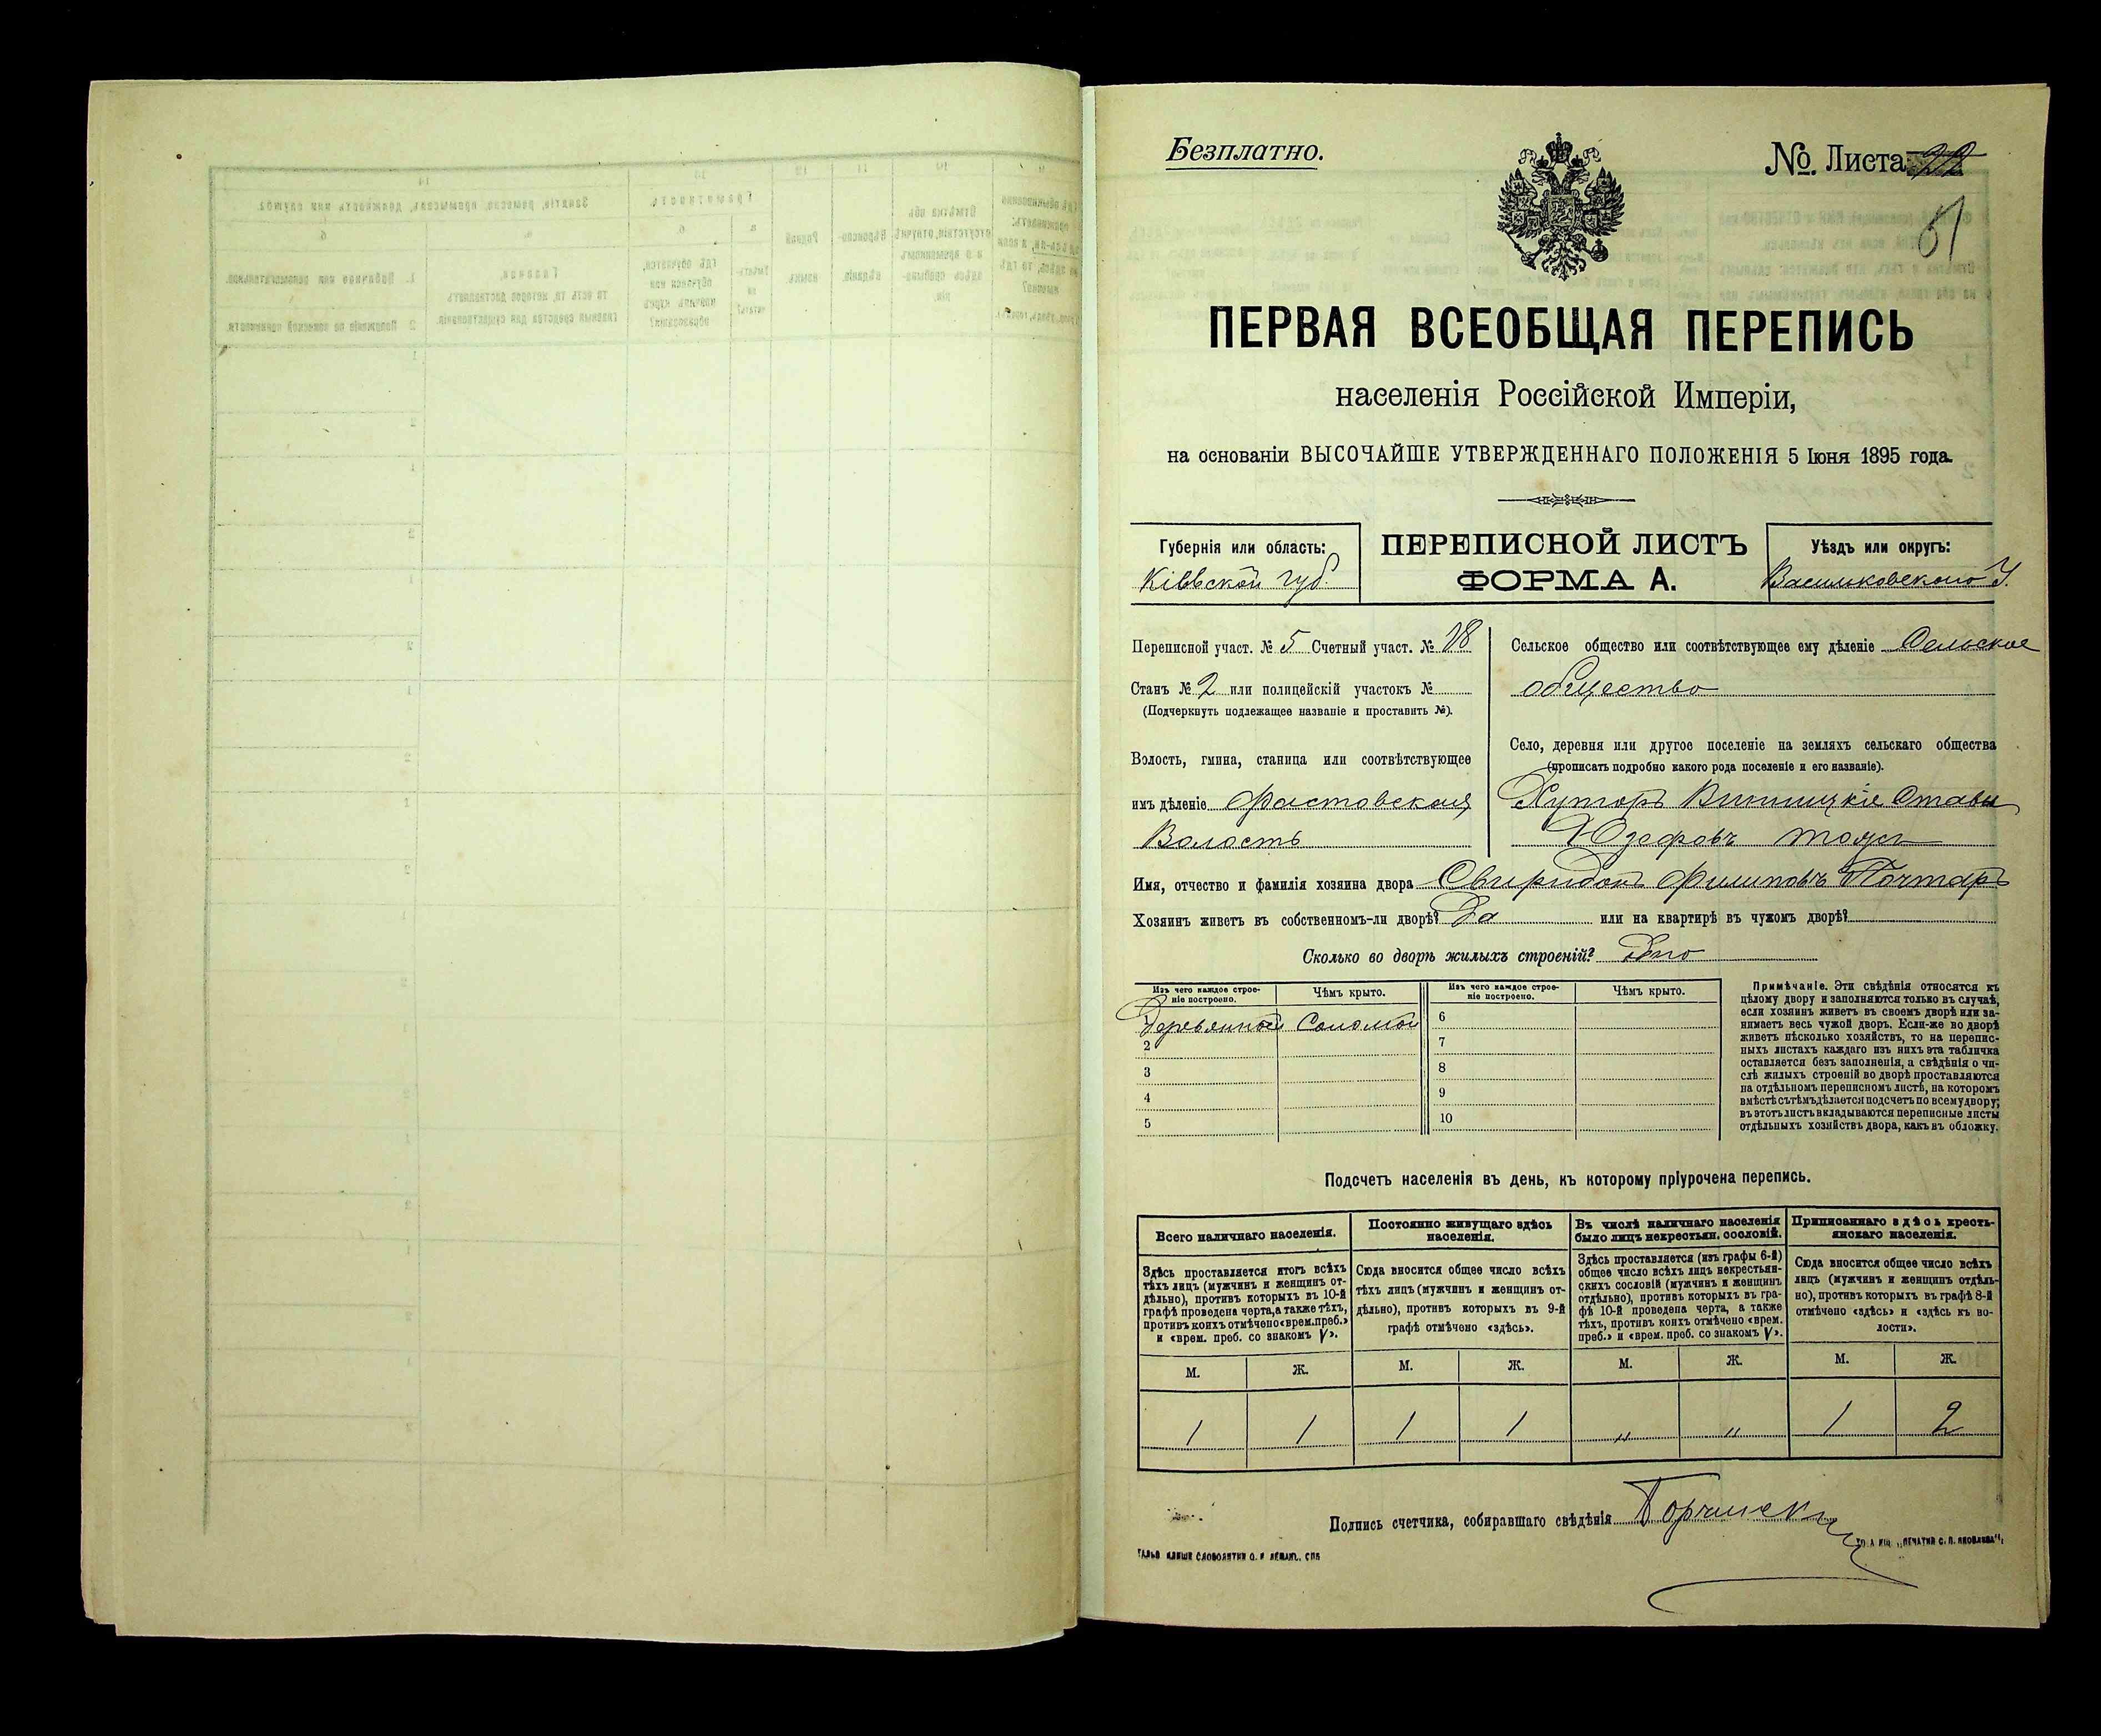 Безплатно.
№ Листа 22
51
ПЕРВАЯ ВСЕОБЩАЯ ПЕРЕПИСЬ
населенія Россійской Имперіи,
на основаніи ВЫСОЧАЙШЕ УТВЕРЖДЕННАГО ПОЛОЖЕНІЯ 5 Іюня 1895 года.
Губернія или область:
Кіевской губ.
ПЕРЕПИСНОЙ ЛИСТЪ
ФОРМА А.
Уѣздъ или округъ:
Васильковскаго У.
Переписной участ. № 5 Счетный участ. № 18
Станъ № 2 или полицейскій участокъ №
(Подчеркнуть подлежащее названіе и проставить №).
Волость, гмина, станица или соотвѣтствующее
имъ дѣленіе Фастовская
Волость
Сельское общество или соотвѣтствующее ему дѣленіе Сельское
общество
Село, деревня или другое поселеніе на земляхъ сельскаго общества
(прописать подробно какого рода поселеніе и его названіе).
Хуторъ Винницкіе Ставы
Юзефовъ тожъ
Имя, отчество и фамилія хозяина двора Свиридонъ Филиповъ Почтаръ
Хозяинъ живетъ въ собственномъ-ли дворѣ? Да или на квартирѣ въ чужомъ дворѣ?
Сколько во дворѣ жилыхъ строеній?
Изъ чего каждое строе-
ніе построено.
Чѣмъ крыто.
Изъ чего каждое строе-
ніе построено.
Чѣмъ крыто.
1 Деревянное Соломой
2
3
4
5
6
7
8
9
10
Примѣчаніе. Эти свѣдѣнія относятся къ
цѣлому двору и заполняются только въ случаѣ,
если хозяинъ живетъ въ своемъ дворѣ или за-
нимаетъ весь чужой дворъ. Если-же во дворѣ
живетъ нѣсколько хозяйствъ, то на перепис-
ныхъ листахъ каждаго изъ нихъ эта табличка
оставляется безъ заполненія, а свѣдѣнія о чи-
слѣ жилыхъ строеній во дворѣ проставляются
на отдѣльномъ переписномъ листѣ, на которомъ
вмѣстѣ съ тѣмъ дѣлается подсчетъ по всему двору;
въ этотъ листъ вкладываются переписные листы
отдѣльныхъ хозяйствъ двора, какъ въ обложку.
Подсчетъ населенія въ день, къ которому пріурочена перепись.
Всего наличнаго населенія.
Здѣсь проставляется итогъ всѣхъ
тѣхъ лицъ (мужчинъ и женщинъ от-
дѣльно), противъ которыхъ въ 10-й
графѣ проведена черта, а также тѣхъ,
противъ коихъ отмѣчено «врем. преб.»
и «врем. преб. со знакомъ V».
Постоянно живущаго здѣсь
населенія.
Сюда вносится общее число всѣхъ
тѣхъ лицъ (мужчинъ и женщинъ от-
дѣльно), противъ которыхъ въ 9-й
графѣ отмѣчено «здѣсь».
Въ числѣ наличнаго населенія
было лицъ некрестьян. сословій.
Здѣсь проставляется (изъ графы 6-й)
общее число всѣхъ лицъ некрестьян-
скихъ сословій (мужчинъ и женщинъ
отдѣльно), противъ которыхъ въ гра-
фѣ 10-й проведена черта, а также
тѣхъ, противъ коихъ отмѣчено «врем.
преб.» и «врем. преб. со знакомъ V».
Приписаннаго здѣсь кресть-
янскаго населенія.
Сюда вносится общее число всѣхъ
лицъ (мужчинъ и женщинъ отдѣль-
но), противъ которыхъ въ графѣ 8-й
отмѣчено «здѣсь» и «здѣсь къ во-
лости».
М. Ж. М. Ж. М. Ж. М. Ж.
1 1 1 1 " " 1 2
Подпись счетчика, собиравшаго свѣдѣнія